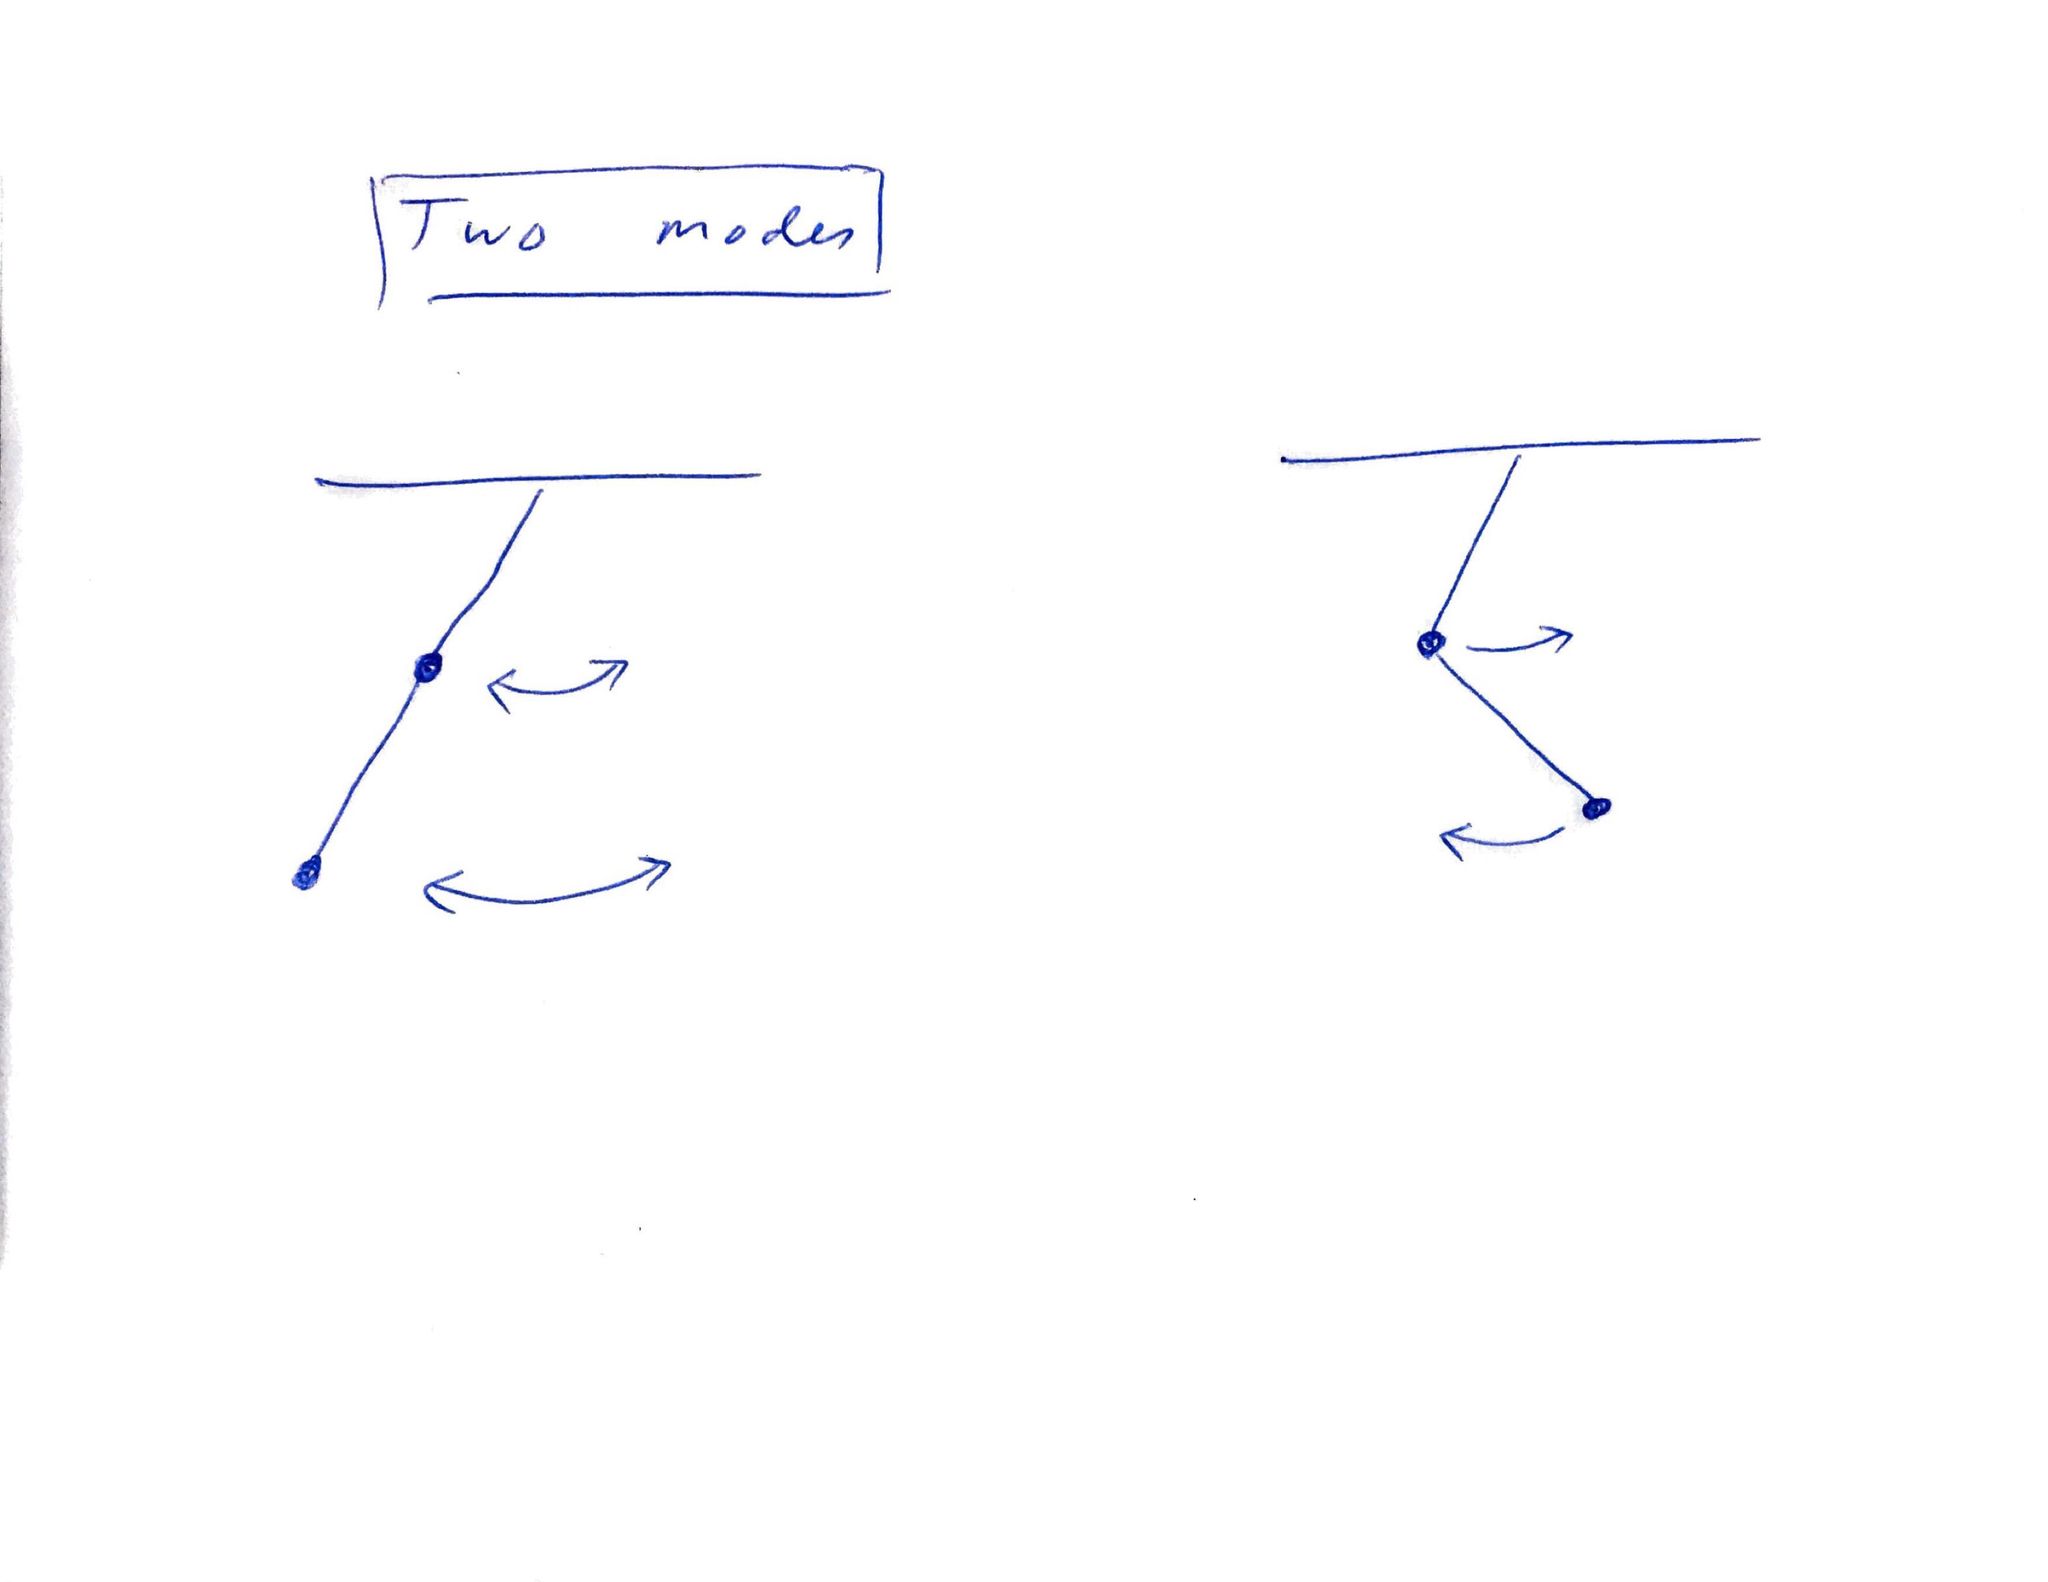 Two modes